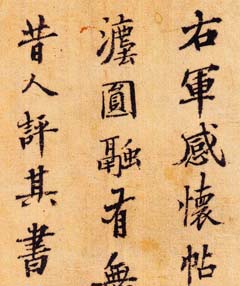 右軍感懷帖
灋圓融有無
昔人評其書